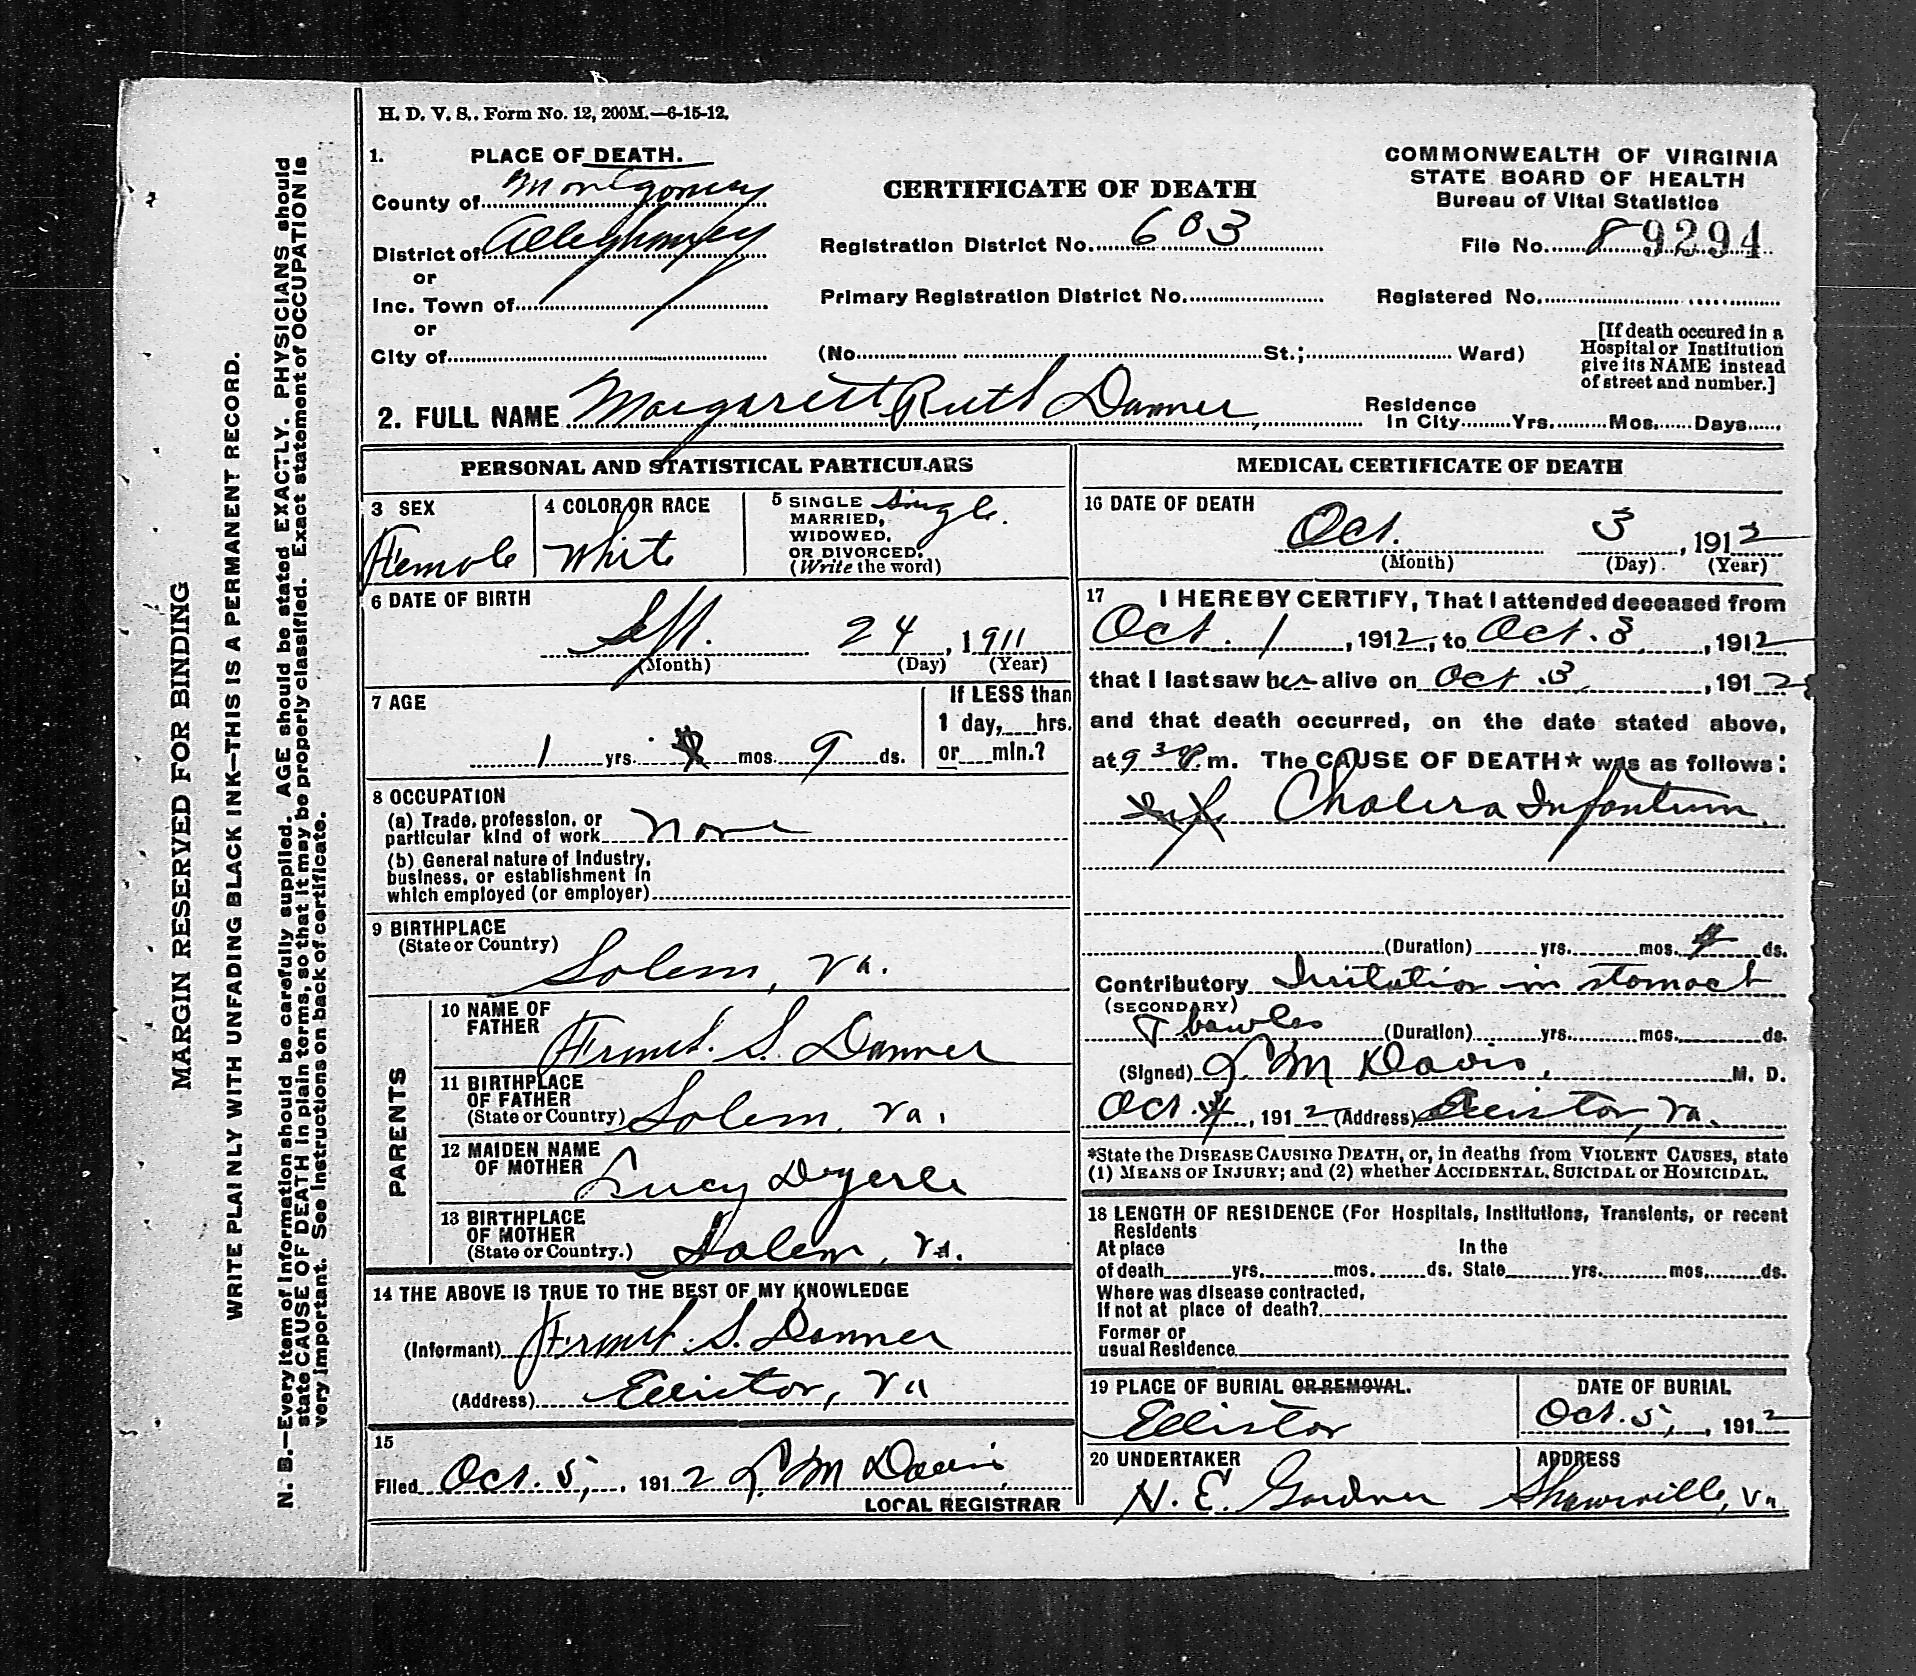 H. D. V. S.. Form No. 12, 200M.—6-15-12.
1. PLACE OF DEATH.
County of Montgomery
District of Alleghaney
or
Inc. Town of
or
City of
CERTIFICATE OF DEATH
Registration District No. 603
Primary Registration District No.
(No. St.; Ward)
COMMONWEALTH OF VIRGINIA
STATE BOARD OF HEALTH
Bureau of Vital Statistics
File No. 9294
Registered No.
[If death occured in a
Hospital or Institution
give its NAME instead
of street and number.]
2. FULL NAME Margarett Ruth Danner
Residence
In City Yrs. Mos. Days
PERSONAL AND STATISTICAL PARTICULARS
3 SEX
Female
4 COLOR OR RACE
White
5 SINGLE Single.
MARRIED,
WIDOWED,
OR DIVORCED.
(Write the word)
6 DATE OF BIRTH
Sept. 24, 1911
(Month) (Day) (Year)
7 AGE
1 yrs. mos. 9 ds.
If LESS than
1 day, hrs.
or min.?
8 OCCUPATION
(a) Trade, profession, or
particular kind of work None
(b) General nature of Industry,
business, or establishment in
which employed (or employer)
9 BIRTHPLACE
(State or Country)
Salem, Va.
PARENTS
10 NAME OF
FATHER
Ernest. S. Danner
11 BIRTHPLACE
OF FATHER
(State or Country) Salem, Va.
12 MAIDEN NAME
OF MOTHER
Lucy Dyerle
13 BIRTHPLACE
OF MOTHER
(State or Country.) Salem, Va.
14 THE ABOVE IS TRUE TO THE BEST OF MY KNOWLEDGE
(Informant) Ernest. S. Danner
(Address) Elliston, Va
15
Filed Oct. 5, 1912 L M Davis
LOCAL REGISTRAR
MEDICAL CERTIFICATE OF DEATH
16 DATE OF DEATH
Oct. 3, 1912
(Month) (Day). (Year)
17 I HEREBY CERTIFY, That I attended deceased from
Oct. 1, 1912, to Oct. 3, 1912
that I last saw her alive on Oct. 3, 1912
and that death occurred, on the date stated above,
at 9 30 P m. The CAUSE OF DEATH* was as follows:
Cholera Infantum
(Duration) yrs. mos. 4 ds.
Contributory Irritation in stomach
(SECONDARY)
& bowles (Duration) yrs. mos. ds.
(Signed) L M Davis, M. D.
Oct. 4, 1912 (Address) Elliston, Va.
*State the DISEASE CAUSING DEATH, or, in deaths from VIOLENT CAUSES, state
(1) MEANS OF INJURY; and (2) whether ACCIDENTAL, SUICIDAL or HOMICIDAL.
18 LENGTH OF RESIDENCE (For Hospitals, Institutions, Transients, or recent
Residents
At place In the
of death yrs. mos. ds. State yrs. mos. ds.
Where was disease contracted,
If not at place of death?
Former or
usual Residence
19 PLACE OF BURIAL OR REMOVAL.
Elliston
DATE OF BURIAL
Oct. 5, 1912
20 UNDERTAKER
N. E. Gardner
ADDRESS
Shawsville, Va.
MARGIN RESERVED FOR BINDING
WRITE PLAINLY WITH UNFADING BLACK INK—THIS IS A PERMANENT RECORD.
N. B.—Every item of information should be carefully supplied. AGE should be stated EXACTLY. PHYSICIANS should
state CAUSE OF DEATH in plain terms, so that it may be properly classified. Exact statement of OCCUPATION is
very important. See instructions on back of certificate.